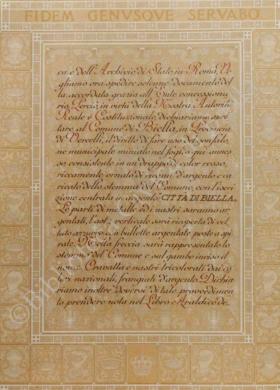 FIDEM
ca e dell'Archivio di Stato in Roma, Vo-
gliamo ora spedire solenne documento del-
la accordata grazia all'Ente concessiona-
rio. Perciò, in virtù della Nostra Autorità
Reale e Costituzionale dichiariamo spet-
tare al Comune di Biella, in Provincia
di Vercelli, il diritto di fare uso del gonfalo-
ne municipale miniato nel foglio qui annes-
so, consistente in un drappo di color rosso,
riccamente ornato di ricami d'argento e ca-
ricato dello stemma del Comune, con l'iscri-
zione centrata in argento: CITTÀ DI BIELLA.
Le parti di metallo ed i nastri saranno ar-
gentati, l'asta verticale sarà ricoperta di vel-
luto azzurro, a bullette argentate poste a spi-
rale. Nella freccia sarà rappresentato lo
stemma del Comune e sul gambo inciso il
nome. Cravatta e nastri tricolorati dai co-
lori nazionali, frangiati d'argento. Dichia-
riamo inoltre doversi di tale provvedimen-
to prendere nota nel Libro Araldico de-